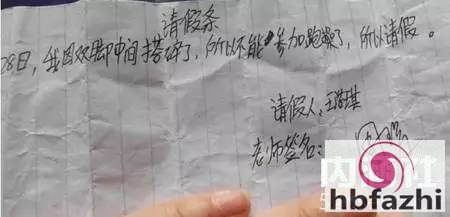 请假条
28日，我因双脚中间搭碎了，所以不能参加跑操了，所以请假。
请假人：王瑞琪
老师签名：
hbfazhi